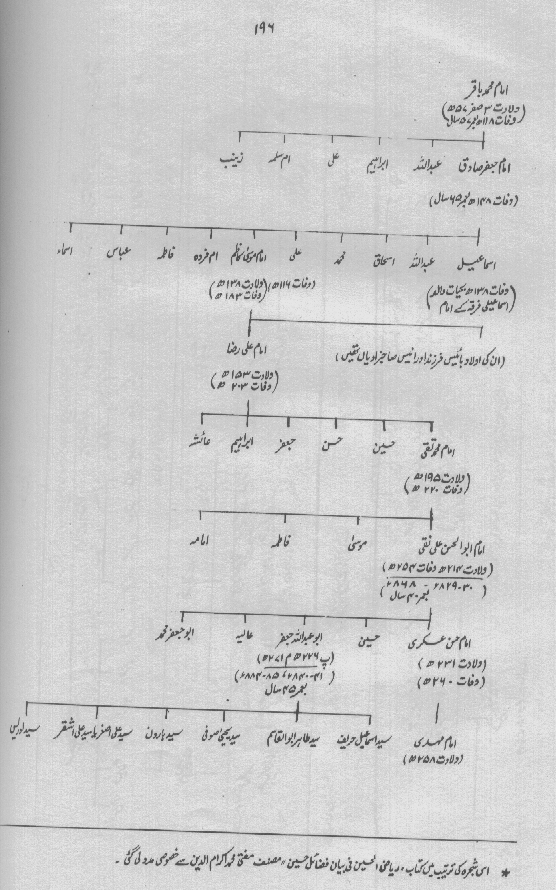 ۱۹۶
امام محمد باقر
(ولادت ۳ صفر ۵۷ھ
وفات ۱۱۸ھ بعمر ۵۷ سال)
امام جعفر صادق عبداللہ ابراہیم علی ام سلمہ زینب
(وفات ۱۴۸ھ بعمر ۶۵ سال)
اسماعیل عبداللہ اسحاق محمد علی امام موسیٰ کاظم ام فردہ فاطمہ عباس اسماء
(وفات ۱۳۸ھ بحیات والد (وفات ۱۱۶ھ) (ولادت ۱۲۸ھ
اسماعیلی فرقہ کے امام) وفات ۱۸۳ھ)
(ان کی اولاد بائیس فرزند اور انیس صاحبزادیاں تھیں) امام علی رضا
(ولادت ۱۵۳ھ
وفات ۲۰۳ھ)
امام محمد تقی حسین حسن جعفر ابراہیم عائشہ
(ولادت ۱۹۵ھ
وفات ۲۲۰ھ)
امام ابوالحسن علی نقی موسیٰ فاطمہ امامہ
(ولادت ۲۱۴ھ وفات ۲۵۴ھ)
(۸۲۹-۳۰ء - ۸۶۸ء
بعمر ۴۰ سال)
امام حسن عسکری حسین ابو عبداللہ جعفر عالیہ ابو جعفر محمد
(ولادت ۲۳۱ھ) (پ ۲۲۶ھ م ۲۷۱ھ)
(وفات ۲۶۰ھ) (۸۴۰-۴۱ء ۸۸۴-۸۵ء)
بعمر ۴۵ سال
امام مہدی سید اسماعیل حریف سید طاہر ابوالقاسم سید یحییٰ صوفی سید ہارون سید علی اصغر یا سید علی اشقر سید ادریس
(ولادت ۲۵۸ھ)
* اسی شجرہ کی ترتیب میں کتاب "ریاض الحسین فی بیان فضائل حسین" مصنف مفتی محمد اکرام الدین سے خصوصی مدد لی گئی ۔